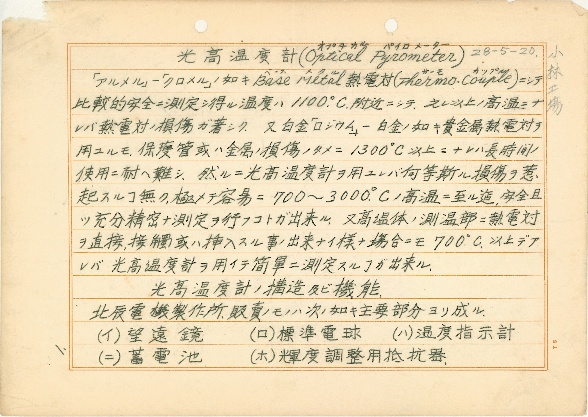 光高温度計(Optical Pyrometer) 28-5-20.
オプチカル パイロメーター
小林工場
「アルメル」-「クロメル」ノ如キ Base Metal 熱電対(Thermo-Couple)ニシテ
ベース メタル サーモ カップル
比較的安全ニ測定シ得ル温度ハ1100°C.附近ニシテ、之レ以上ノ高温ニナ
レバ熱電対ノ損傷ガ著シク、又白金「ロジウム」-白金ノ如キ貴金属熱電対ヲ
用ユルモ、保護管或ハ金属ノ損傷ノタメニ1300°C以上ニナレバ長時間ノ
使用ニ耐ヘ難シ、然ルニ光高温度計ヲ用ユレバ何等斯ル損傷ヲ惹
起スルコト無ク、極メテ容易ニ700〜3000°Cノ高温ニ至ル迄、安全且
ツ充分精密ナ測定ヲ行フコトガ出来ル。又高温体ノ測温部ニ熱電対
ヲ直接、接触或ハ挿入スル事ノ出来ナイ様ナ場合ニモ700°C.以上デア
レバ 光高温度計ヲ用イテ簡単ニ測定スルコトガ出来ル。
光高温度計ノ構造及ビ機能.
北辰電機製作所.販賣ノモノハ次ノ如キ主要部分ヨリ成ル.
(イ)望遠鏡 (ロ)標準電球 (ハ)温度指示計
(ニ)蓄電池 (ホ)輝度調整用抵抗器.